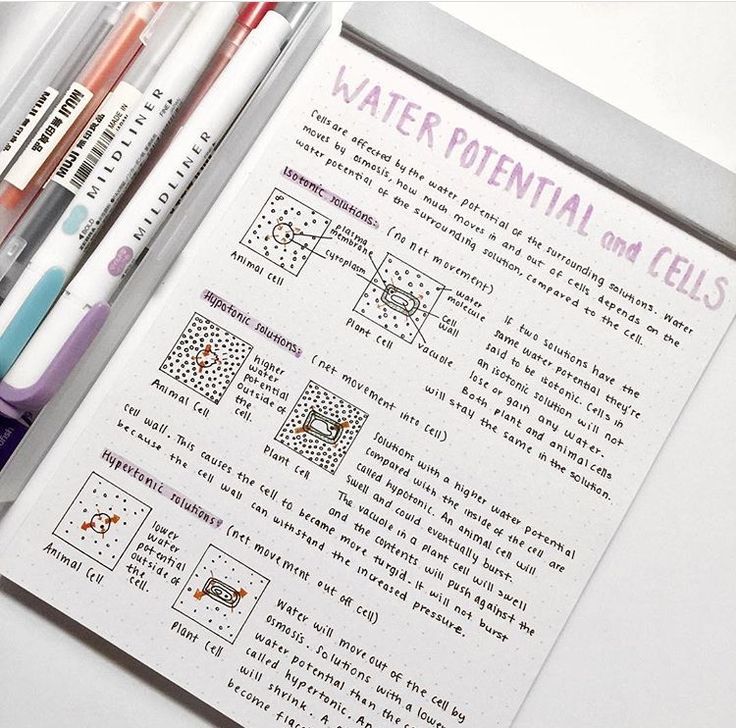 MUJI 無印良品
MUJI 無印良品
MADE IN
MILDLINER
FINE
BOLD
MILDLINER
WATER POTENTIAL and CELLS
Cells are affected by the water potential of the surrounding solutions. Water
moves by osmosis, how much moves in and out of cells depends on the
water potential of the surrounding solution, compared to the cell.
Isotonic solutions: (no net movement)
plasma
membrane
cytoplasm
Animal Cell
water
molecule
cell
wall
vacuole
Plant Cell
If two solutions have the
same water potential they're
said to be isotonic. Cells in
an isotonic solution will not
lose or gain any water.
Both plant and animal cells
will stay the same in the solution.
Hypotonic solutions: (net movement into cell)
higher
water
potential
outside of
the
cell.
Animal Cell
Plant Cell
Solutions with a higher water potential
compared with the inside of the cell are
called hypotonic. An animal cell will
swell and could eventually burst.
The vacuole in a plant cell will swell
and the contents will push against the
cell wall. This causes the cell to became more turgid. It will not burst
because the cell wall can withstand the increased pressure.
Hypertonic solutions: (net movement out off cell)
lower
water
potential
outside of
the
cell.
Animal Cell
Plant Cell
Water will move out of the cell by
osmosis. Solutions with a lower
water potential than the
called hypertonic. An
will shrink. A
become